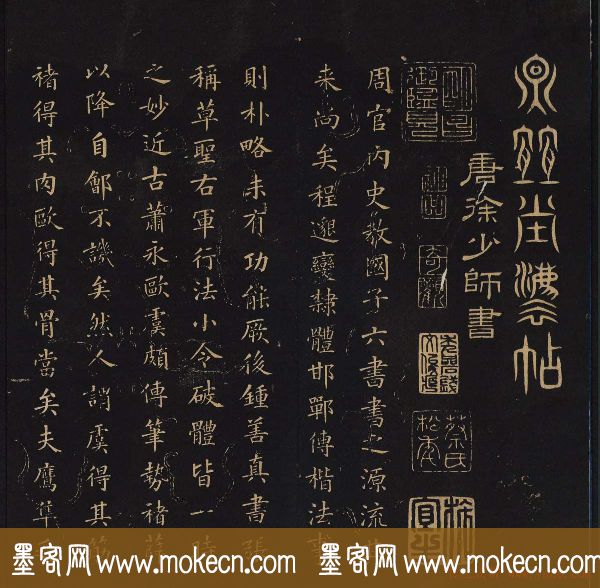 唐徐少師書
周官內史教國子六書書之源流
来尚矣程邈變隸體邯鄲傳楷法事
則朴略未有功能厥後鍾善真書張
稱草聖右軍行法小令破體皆一時
之妙近古蕭永歐虞頗傳筆勢褚薛
以降自鄶不譏矣然人謂虞得其筋
褚得其肉歐得其骨當矣夫鷹隼
蔡氏
墨客网 www.mokecn.com 墨客网 www.mokecn.com